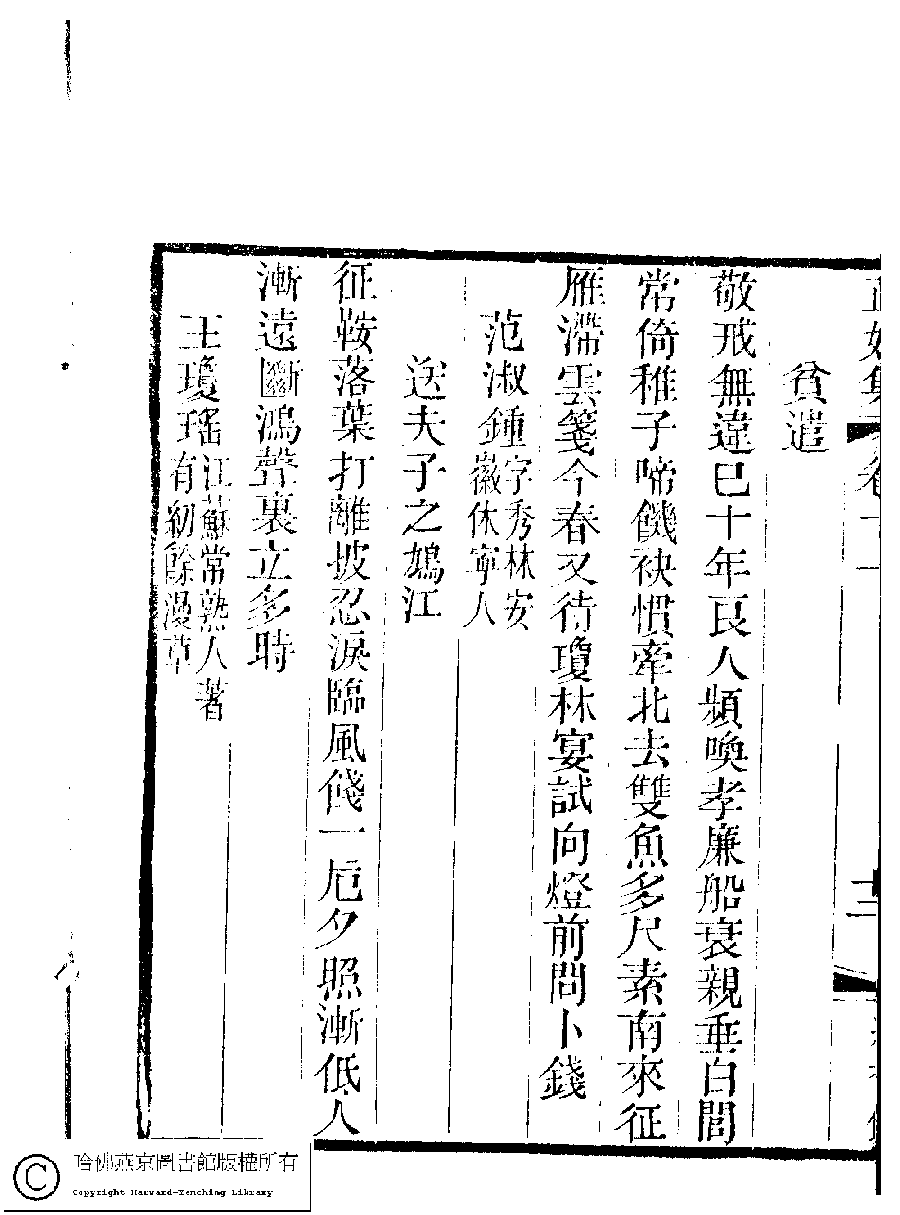 貧遣
敬戒無違已十年良人頻喚孝廉船衰親垂白閭
常倚稚子啼饑袂慣牽北去雙魚多尺素南來征
雁滯雲箋今春又待瓊林宴試向燈前問卜錢
范淑鍾字秀林安徽休寧人
送夫子之鳩江
征鞍落葉打離披忍淚臨風餞一卮夕照漸低人
漸遠斷鴻聲裏立多時
王瓊瑤江蘇常熟人著有紉餘漫草
哈佛燕京圖書館版權所有
Copyright Harvard-Yenching Library